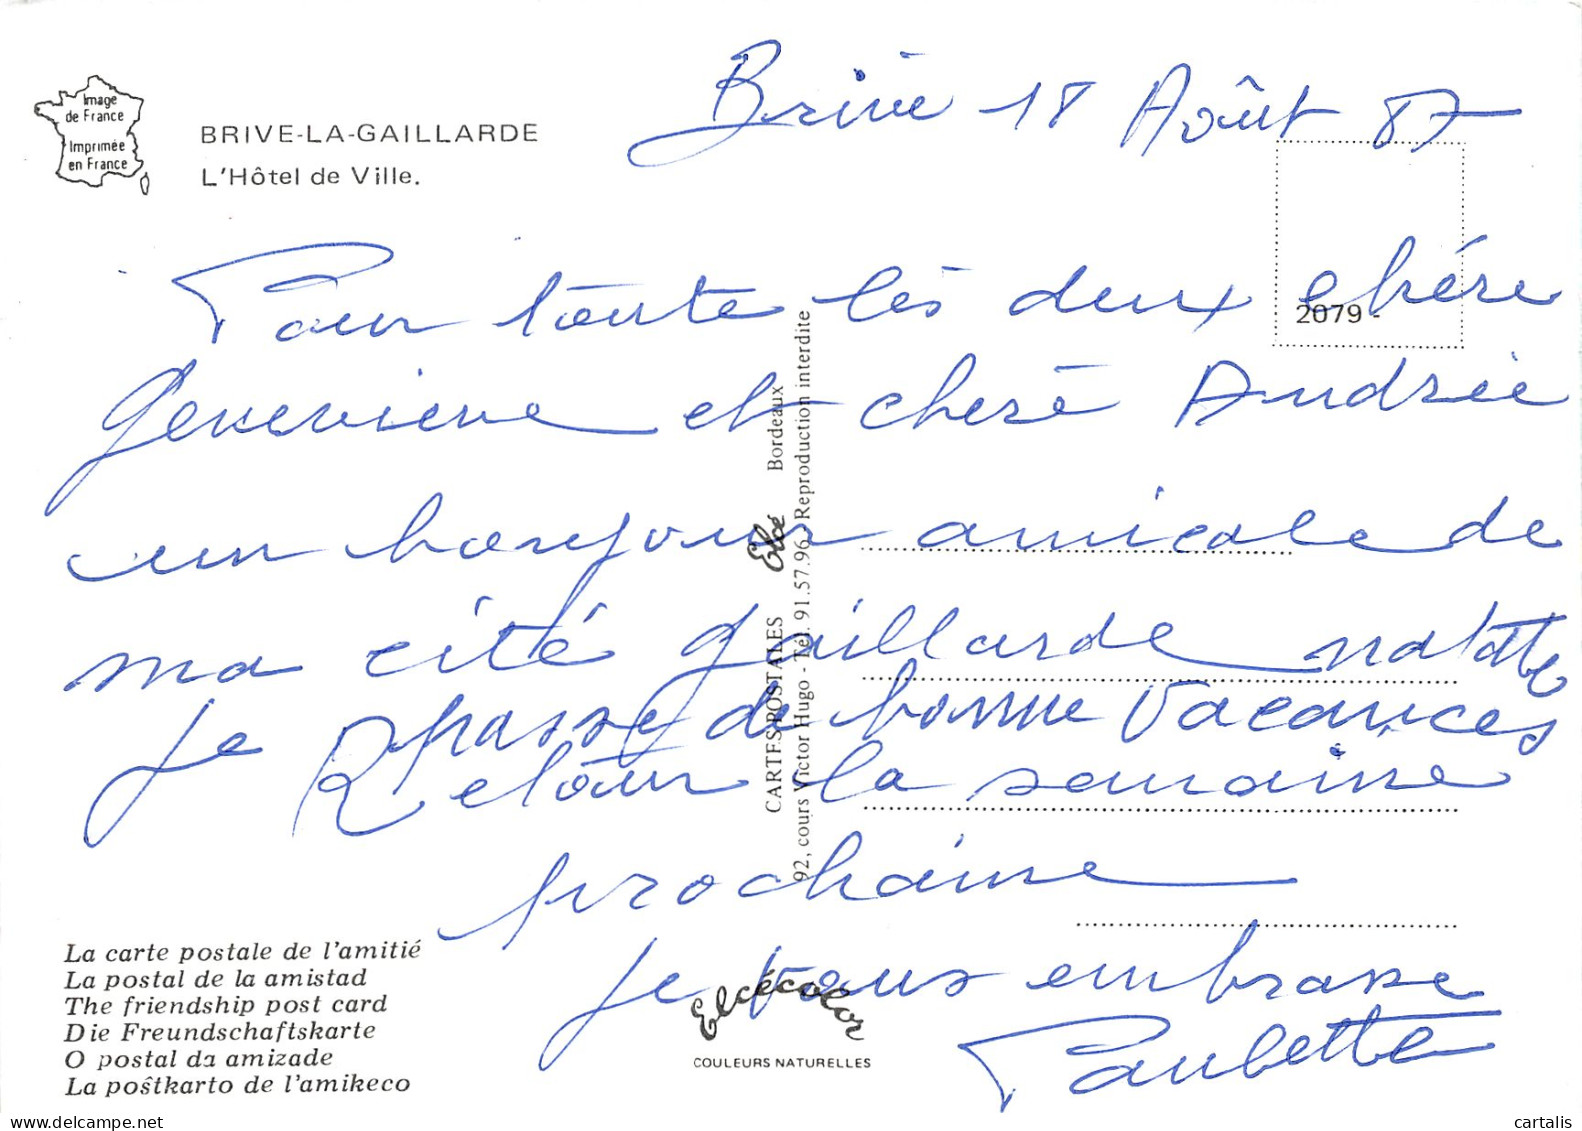 Brive 18 Août 87
Image
de France
Imprimée
en France
BRIVE-LA-GAILLARDE
L'Hôtel de Ville.
2079 -
Pour toute les deux chére
Genevieve et cheré Andrée
un bonjour amicale de
ma cité gaillarde natale
Je passe de bonne Vacances
Retour la semaine
prochaine
Je vous embrasse
Paulette
CARTES POSTALES Elcé Bordeaux
92, cours Victor Hugo - Tél. 91.57.96 Reproduction interdite
La carte postale de l'amitié
La postal de la amistad
The friendship post card
Die Freundschaftskarte
O postal da amizade
La poŝtkarto de l'amikeco
Elcécolor
COULEURS NATURELLES
delcampe.net
cartalis